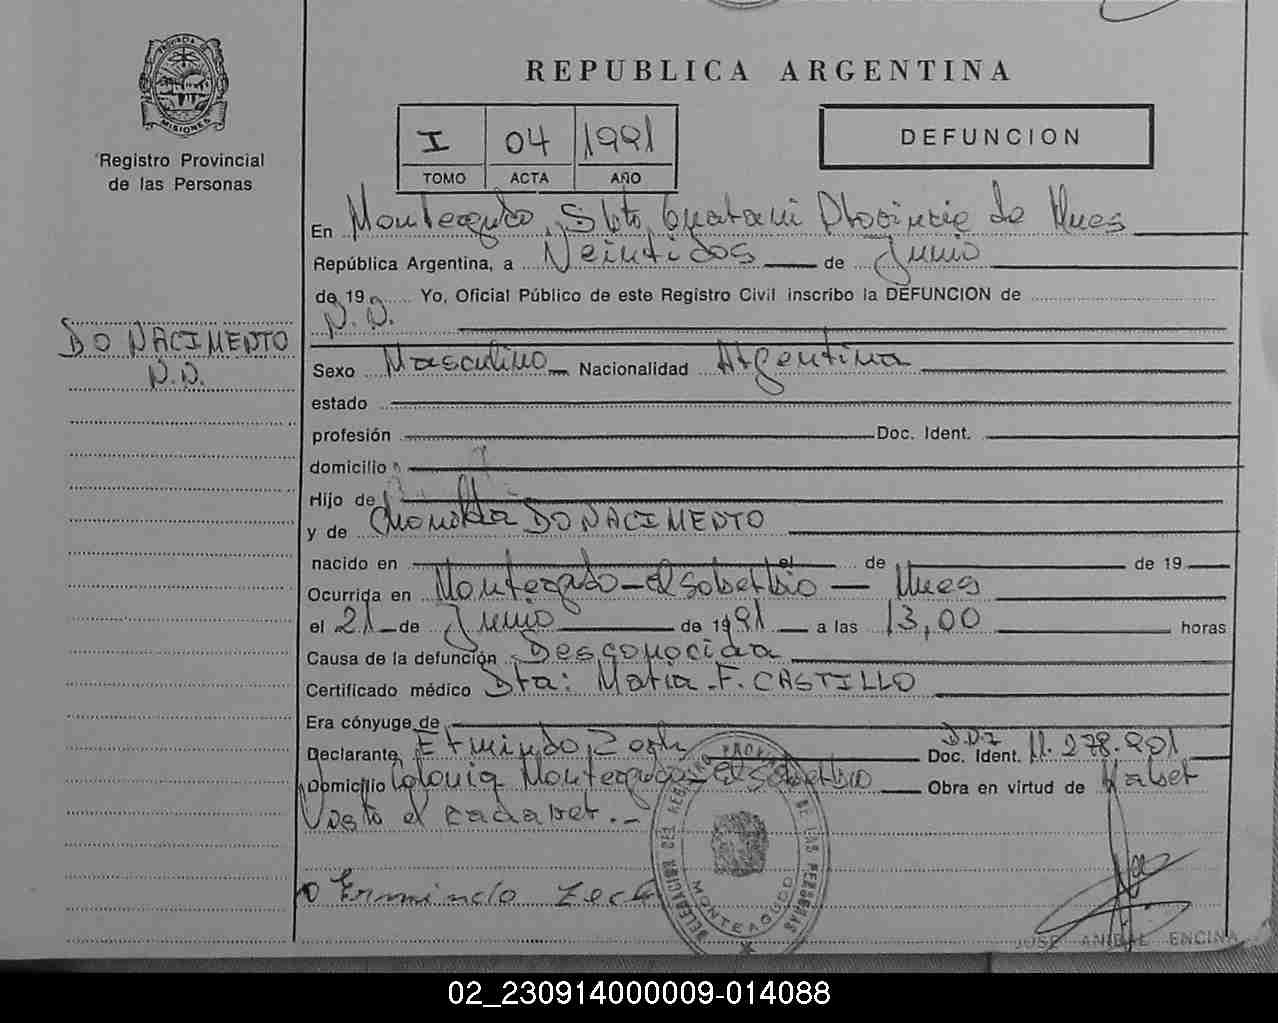 PROVINCIA DE
MISIONES
Registro Provincial
de las Personas
REPUBLICA ARGENTINA
I 04 1991
TOMO ACTA AÑO
DEFUNCION
En Monteagudo, Dpto. Guaraní Provincia de Mnes
República Argentina, a Veintidos de Junio
de 19 Yo, Oficial Público de este Registro Civil inscribo la DEFUNCION de
N.N.
DO NACIMENTO
N.N.
Sexo Masculino Nacionalidad Argentina
estado
profesión Doc. Ident.
domicilio
Hijo de
y de DO NACIMENTO
nacido en el de de 19
Ocurrida en Monteagudo - El Soberbio - Mnes
el 21 de Junio de 1991 a las 13,00 horas
Causa de la defunción Desconocida
Certificado médico Dra: Maria F. CASTILLO
Era cónyuge de
Declarante Ermindo Zech D.N.I. Doc. Ident. 11.278.901
Domicilio Colonia Monteagudo - El Soberbio Obra en virtud de Haber
Visto el cadaver.-
Ermindo Zech
DELEGACION DEL REGISTRO PROVINCIAL DE LAS PERSONAS
MONTEAGUDO
JOSE ANIBAL ENCINA
02_230914000009-014088